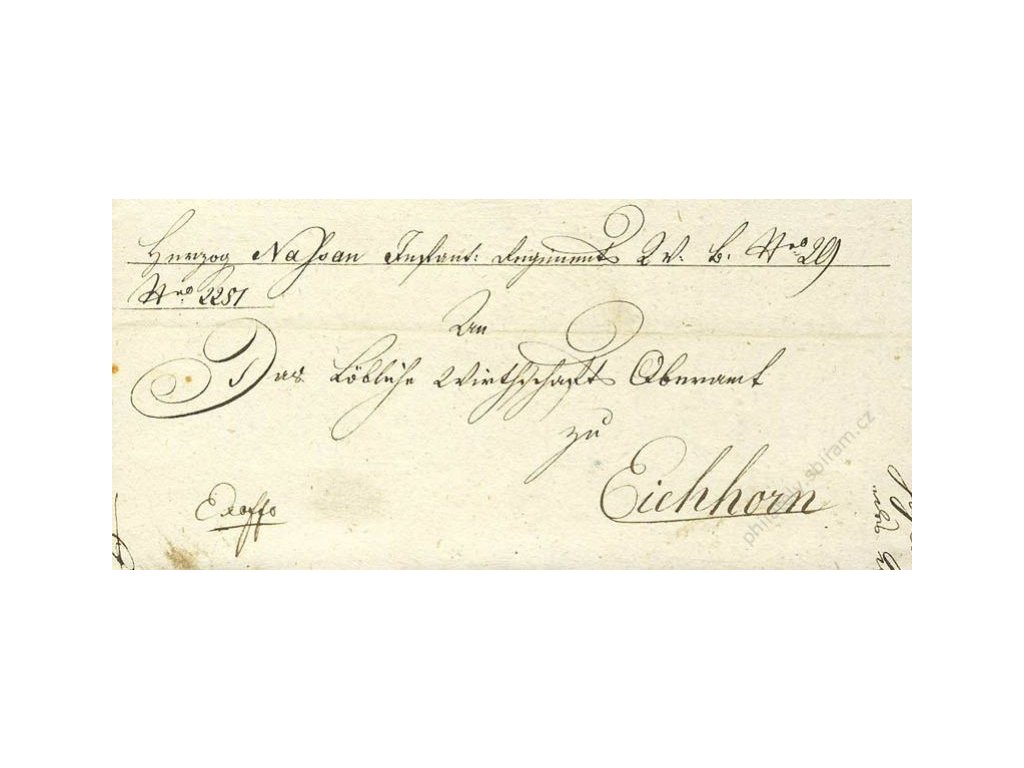 Herzog Nassau Infant: Regiments W. B. Nro 29
Nro 2251
An
Das Löbliche Wirthschafts Oberamt
zu
Eichhorn
Exoffo
philately.sbiram.cz